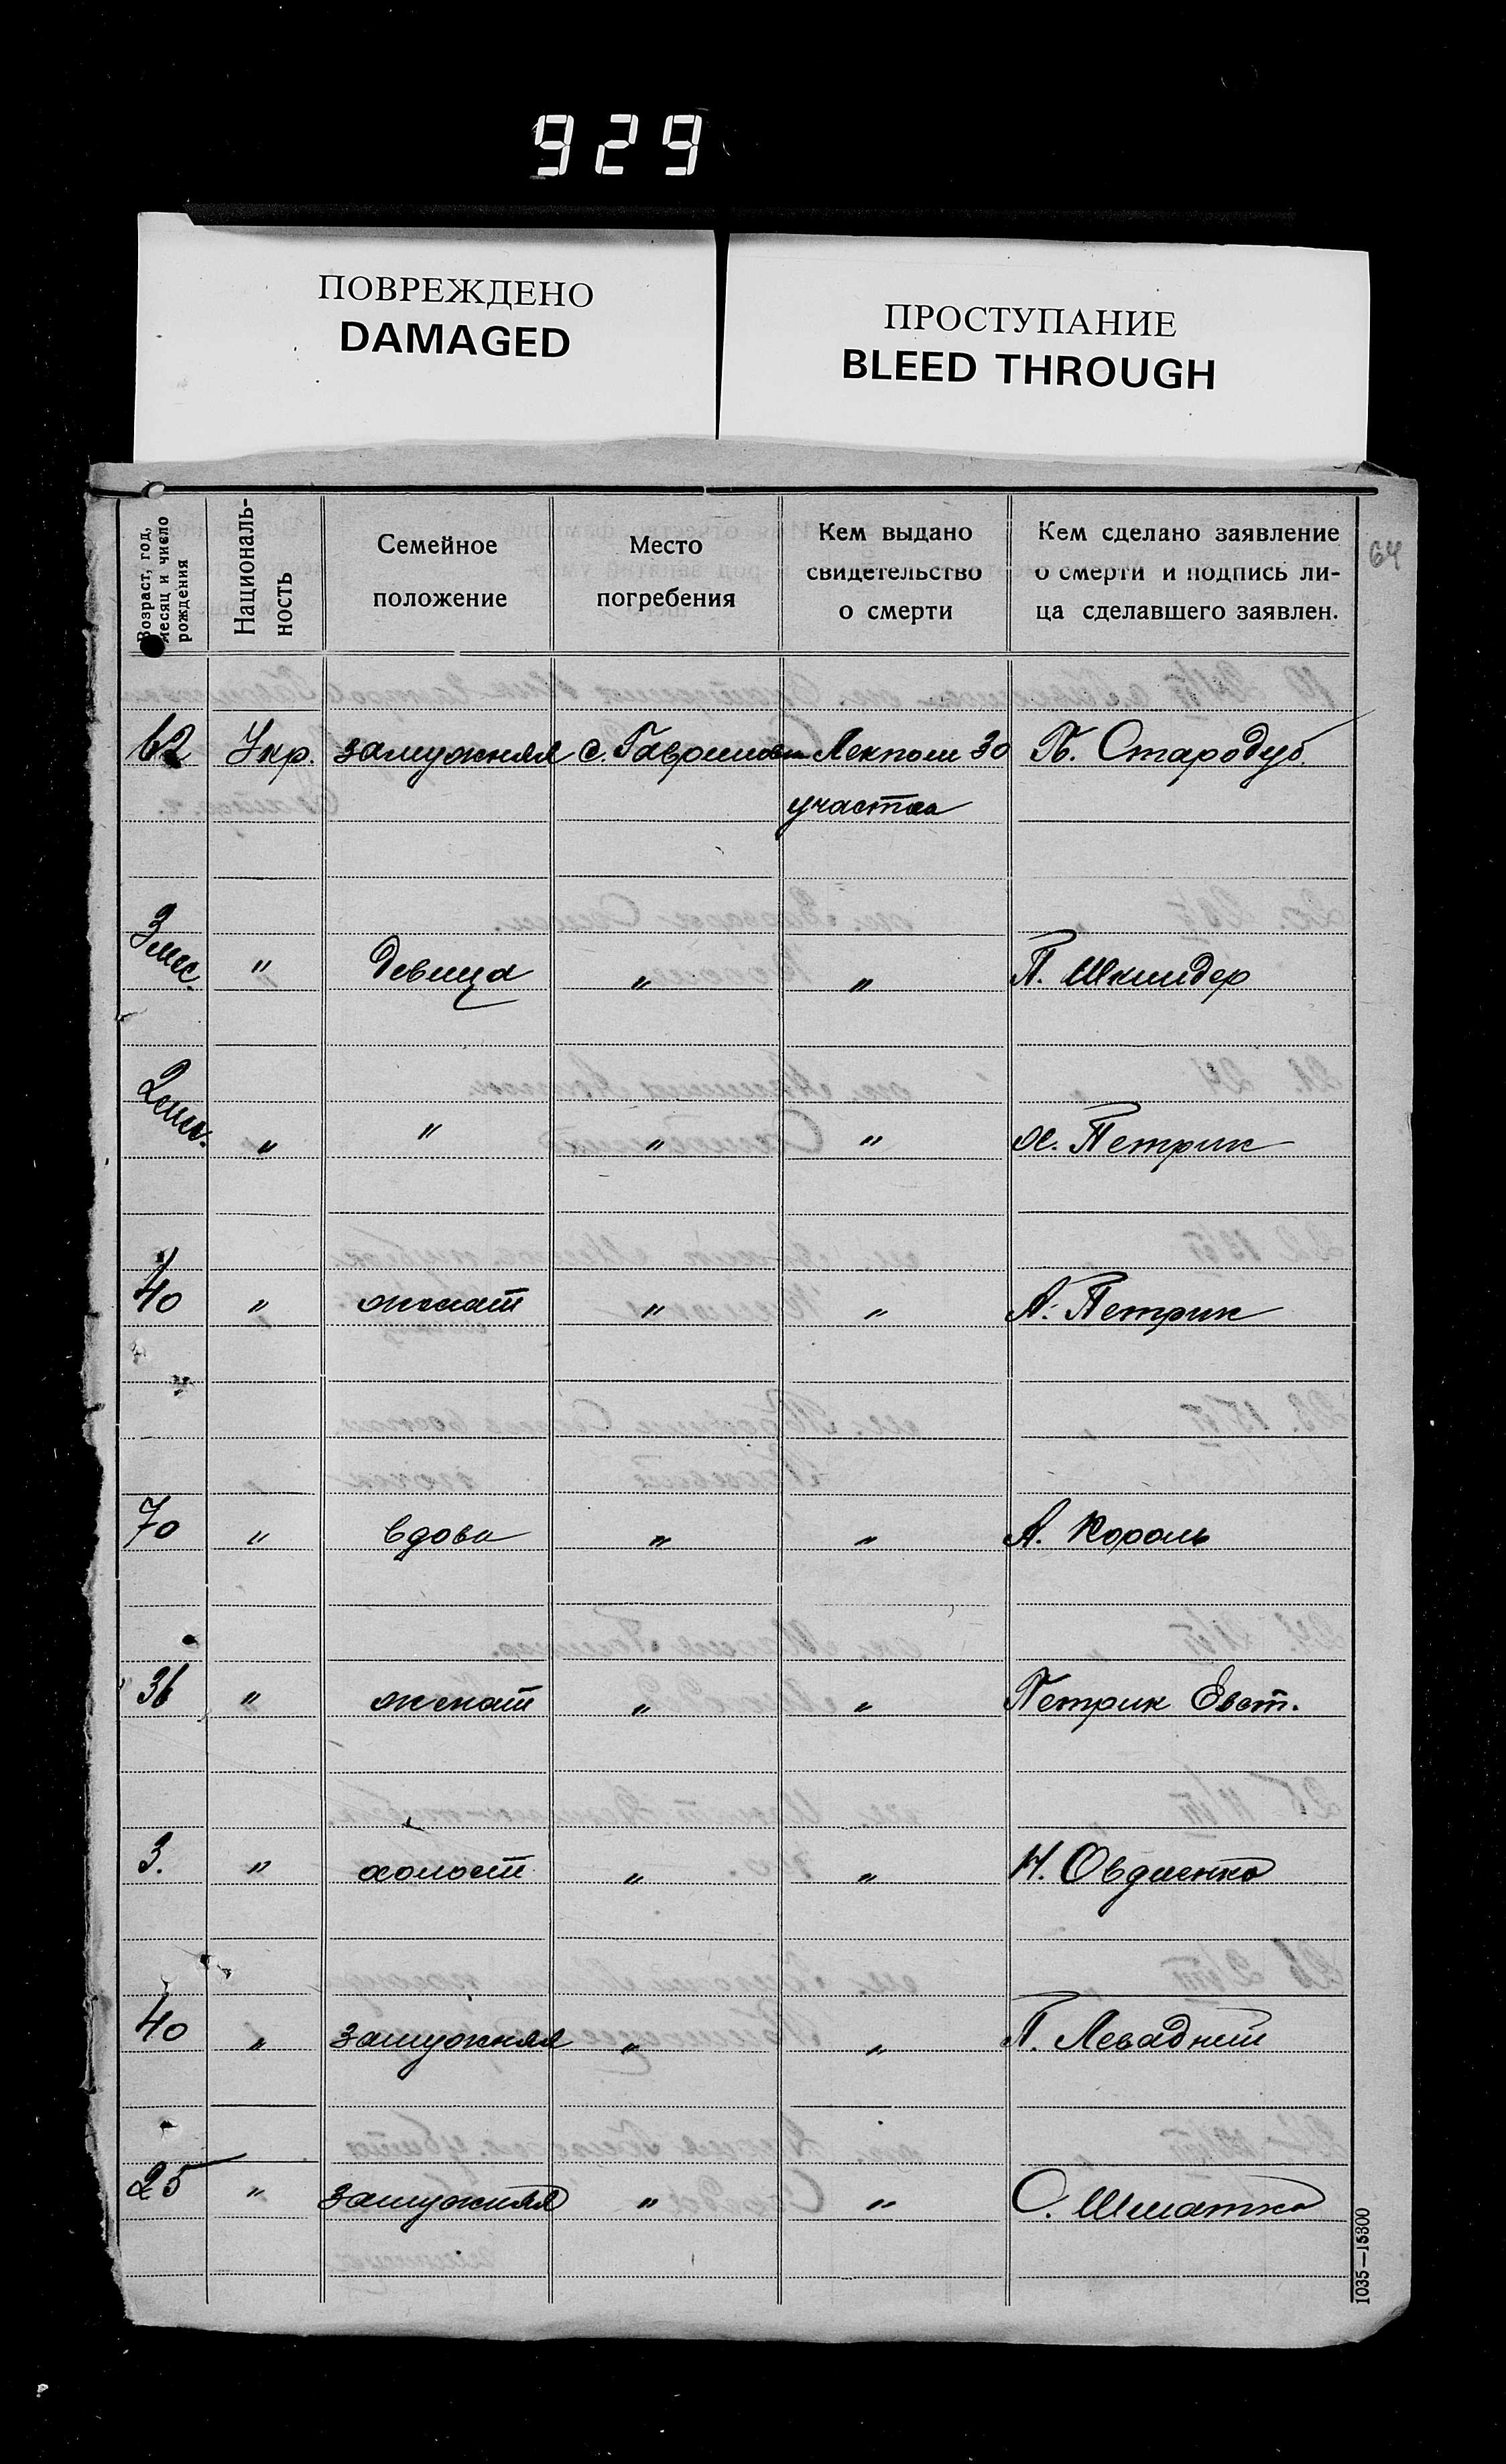 929
ПОВРЕЖДЕНО
DAMAGED
ПРОСТУПАНИЕ
BLEED THROUGH
64
Возраст, год, месяц и число рождения
Националь-ность
Семейное положение
Место погребения
Кем выдано свидетельство о смерти
Кем сделано заявление о смерти и подпись ли-ца сделавшего заявлен.
62 Укр. замужняя с. Гавришовка Лекпом 30 П. Стародуб.
участка
3 мес. " девица " " П. Шкиндер
" " " " Петрик
40 " женат " " А. Петрик
70 " вдова " " А. Король
36 " женат " " Петрик Евст.
3. " холост " " Н. Овдиенко
40 " замужняя " " П. Левадний
25 " замужняя " " С. Шматко
1035—15300